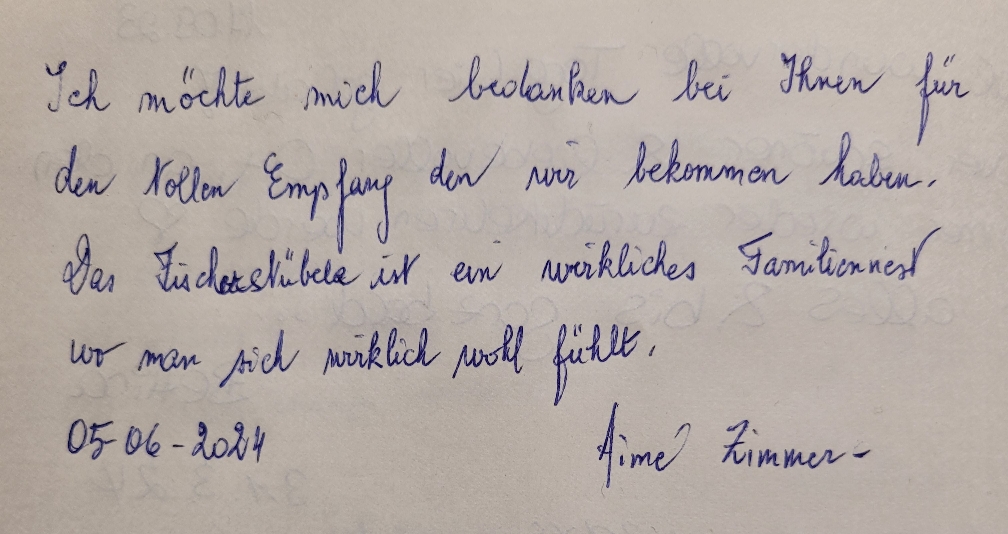 Ich möchte mich bedanken bei Ihnen für
den tollen Empfang den wir bekommen haben.
Das Fischerstübele ist ein wirkliches Familiennest
wo man sich wirklich wohl fühlt.
05-06-2024 Aimé Zimmer-